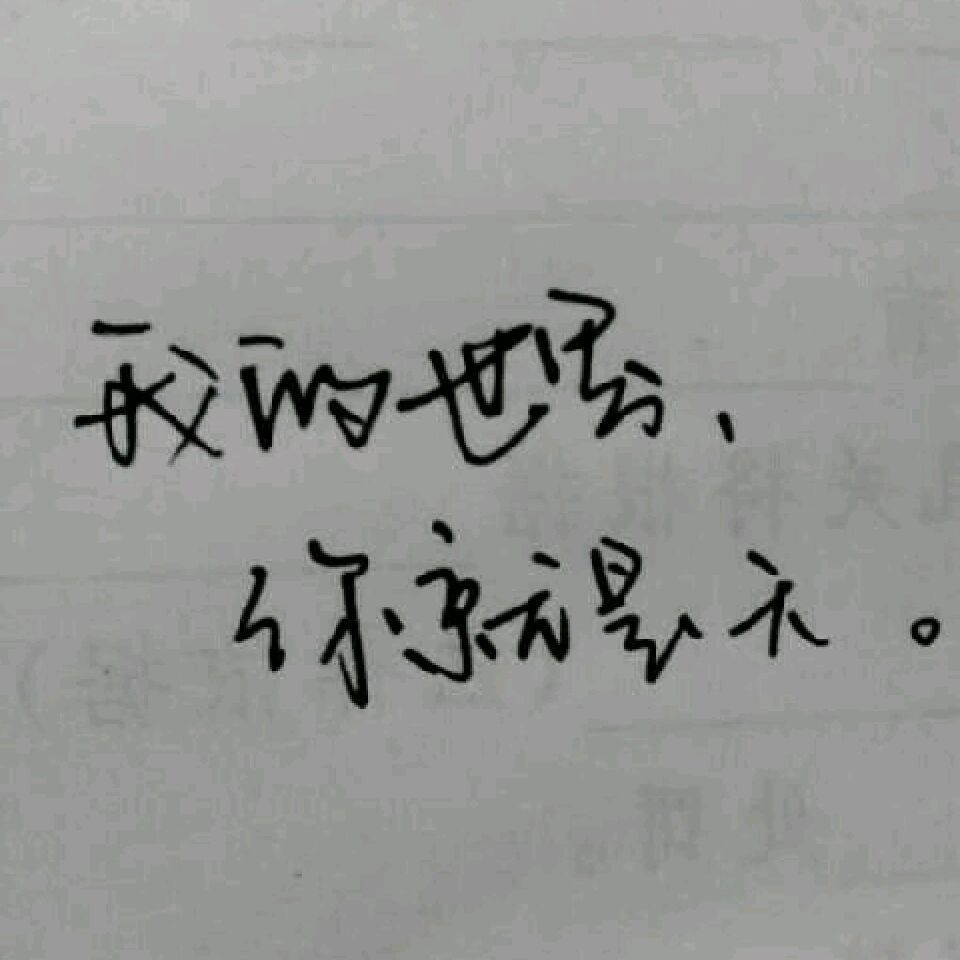 我的世界、
你就是天。